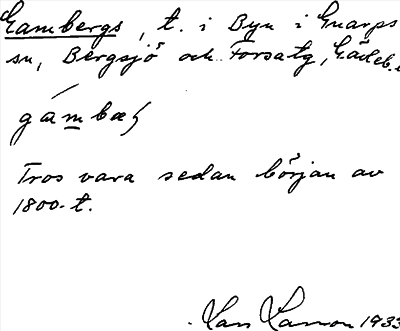 Gambergs, t. i Byn i Gnarps
sn, Bergsjö och Forsa tg, Gävleb.
gámbæ
Tros vara sedan början av
1800-t.
Lars Larsson 1933